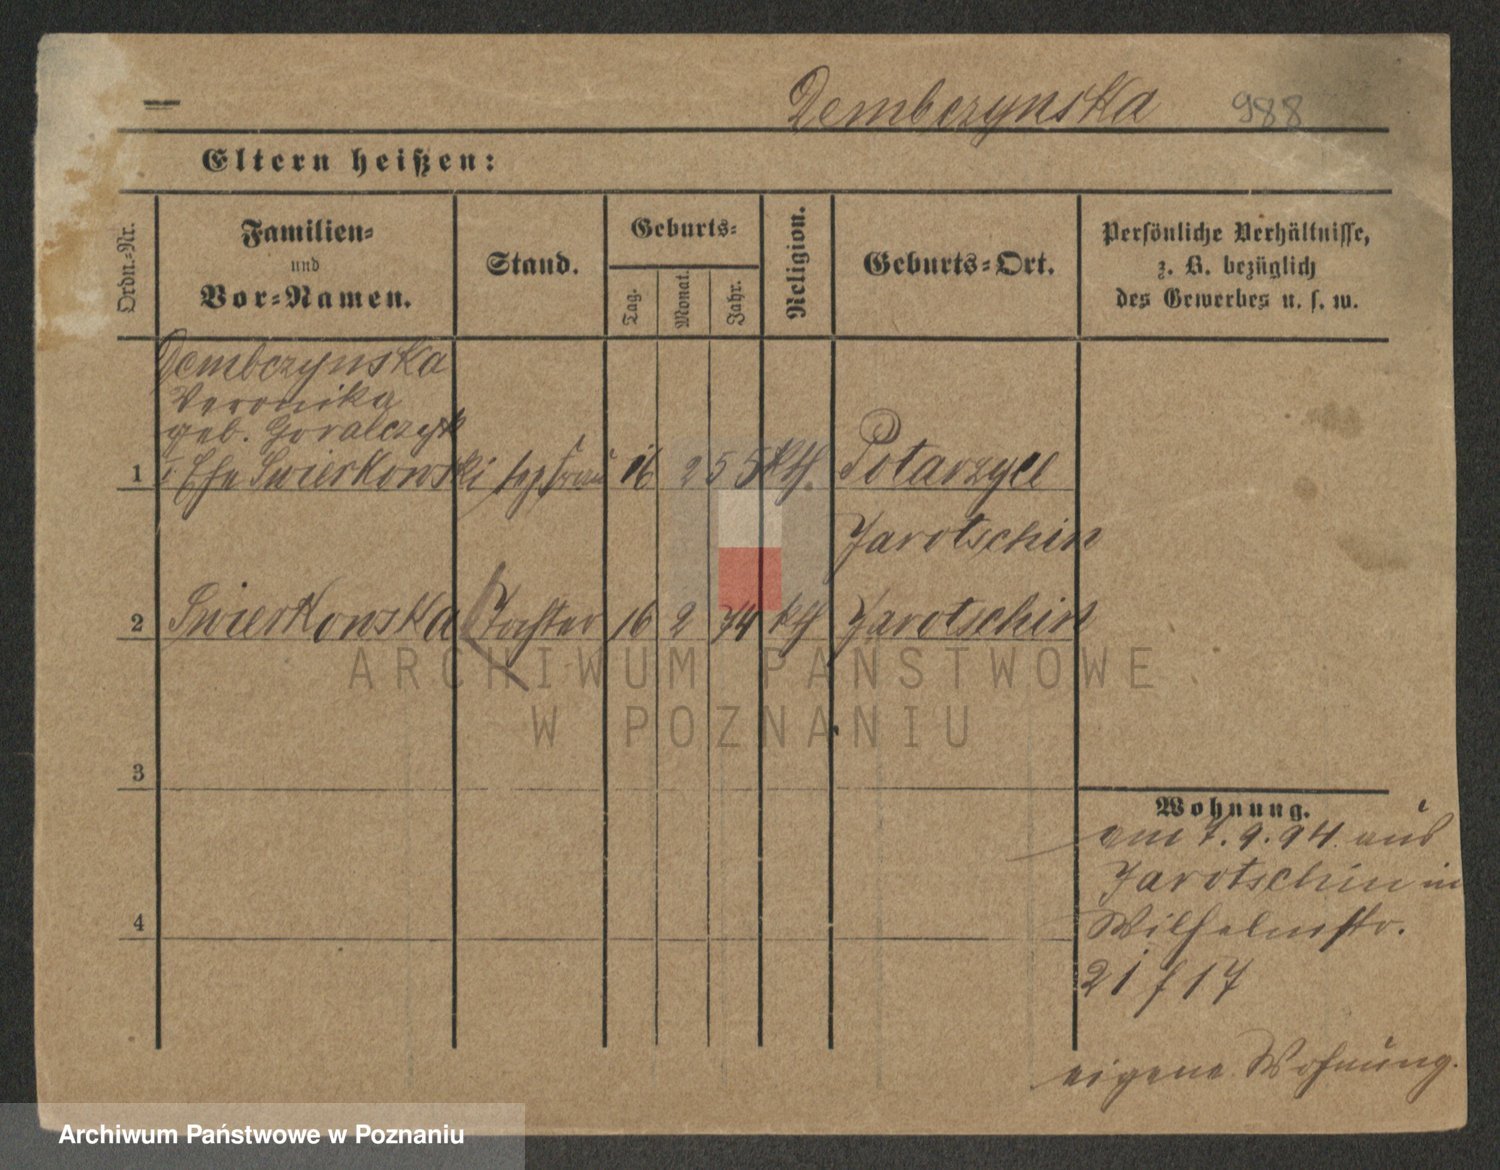 Dembczynska 988
Eltern heißen:
Ordn.-Nr.
Familien-
und
Vor-Namen.
Stand.
Geburts-
Tag.
Monat.
Jahr.
Religion.
Geburts-Ort.
Persönliche Verhältnisse,
z. B. bezüglich
des Gewerbes u. s. w.
Dembczynska
Veronika
geb. Goralczyk
1 Ehe Swierkowski 16 2 55 kth. Potarzyce
Jarotschin
2 Swierkowska Tochter 16 2 74 kth Jarotschin
3
4
Wohnung.
am 7. 9. 94. aus
Jarotschin in
Wilhelmstr.
21 / 17
eigene Wohnung.
ARCHIWUM PAŃSTWOWE
W POZNANIU
Archiwum Państwowe w Poznaniu